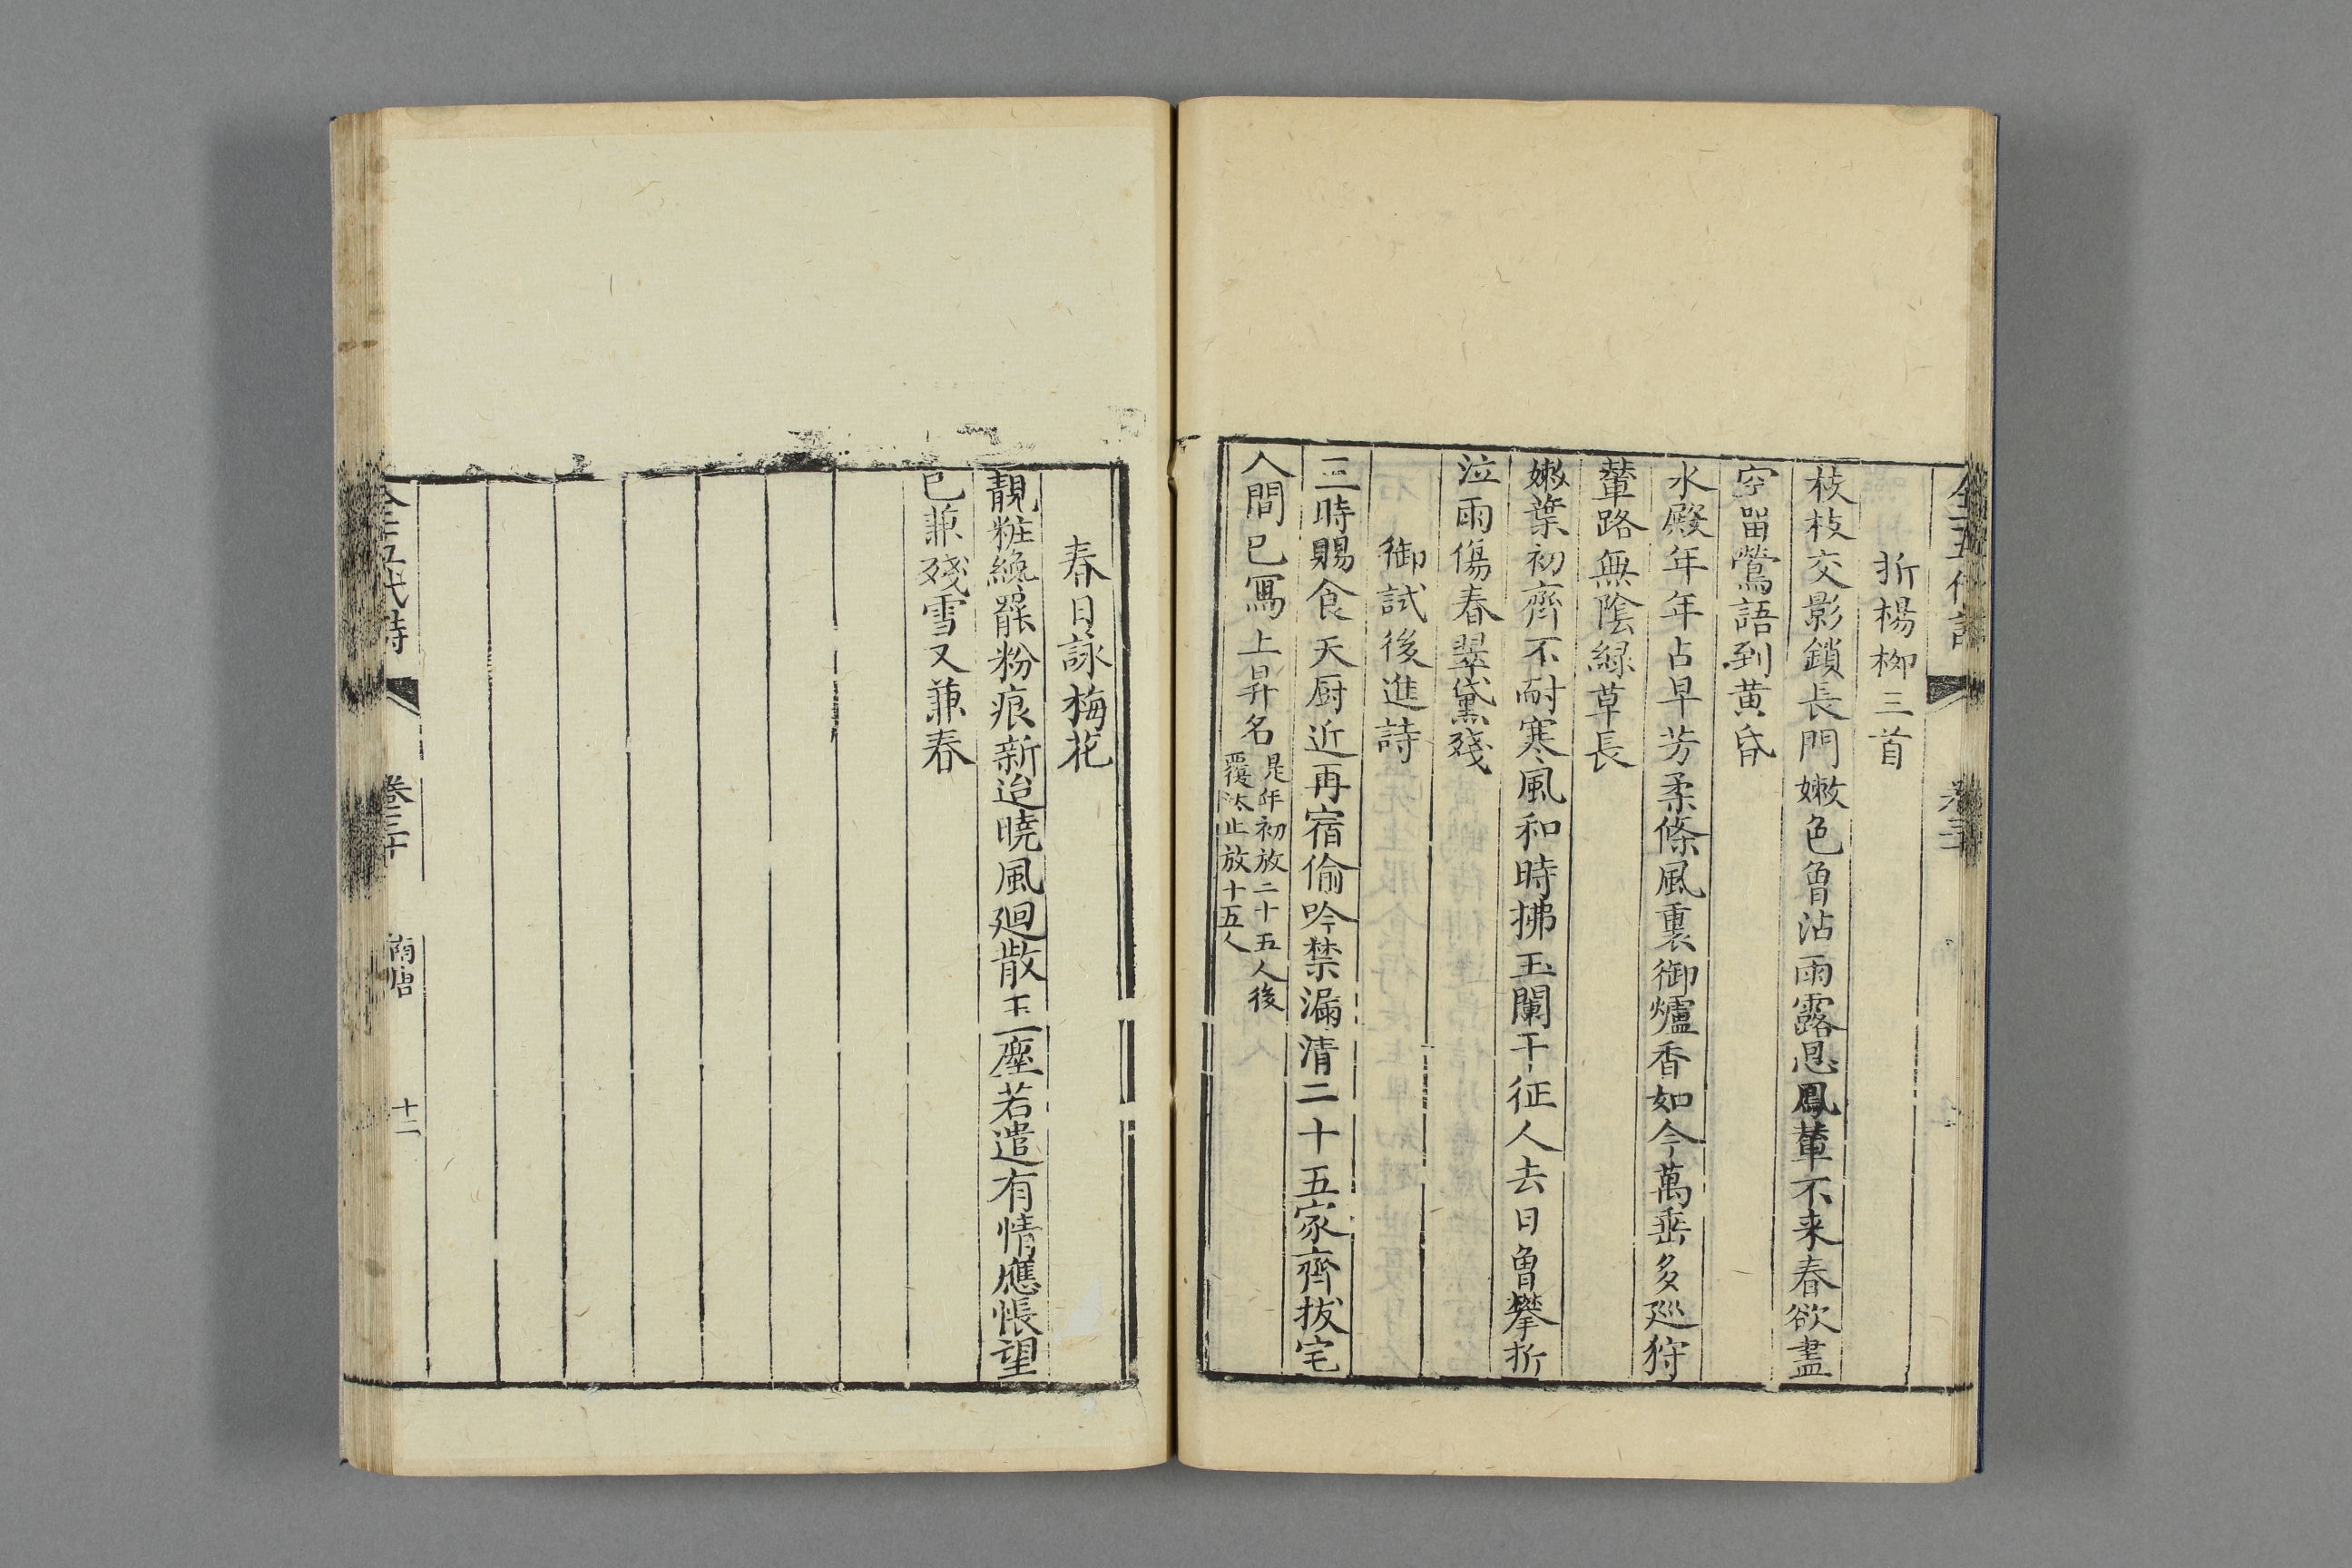 折楊柳三首
枝枝交影鎖長門嫩色曾沾雨露恩鳳輦不来春欲盡
空畱鶯語到黄昏
水殿年年占早芳柔條風裏御爐香如今萬乗多廵狩
輦路無陰緑草長
嫩葉初齊不耐寒風和時拂玉闌干征人去日曾攀折
泣雨傷春翠黛殘
御試後進詩
三時賜食天厨近再宿偷吟禁漏清二十五家齊拔宅
人間已寫上昇名是年初放二十五人後
覆汰止放十五人
春日詠梅花
靚粧纔罷粉痕新迨曉風廻散玉塵若遣有情應悵望
已兼殘雪又兼春
全五代詩
卷三十
南唐
十二